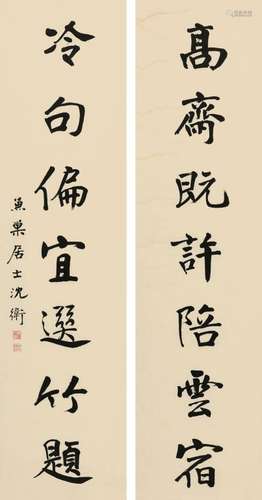 高齋既許陪雲宿
冷句偏宜選竹題
兼巢居士沈衛